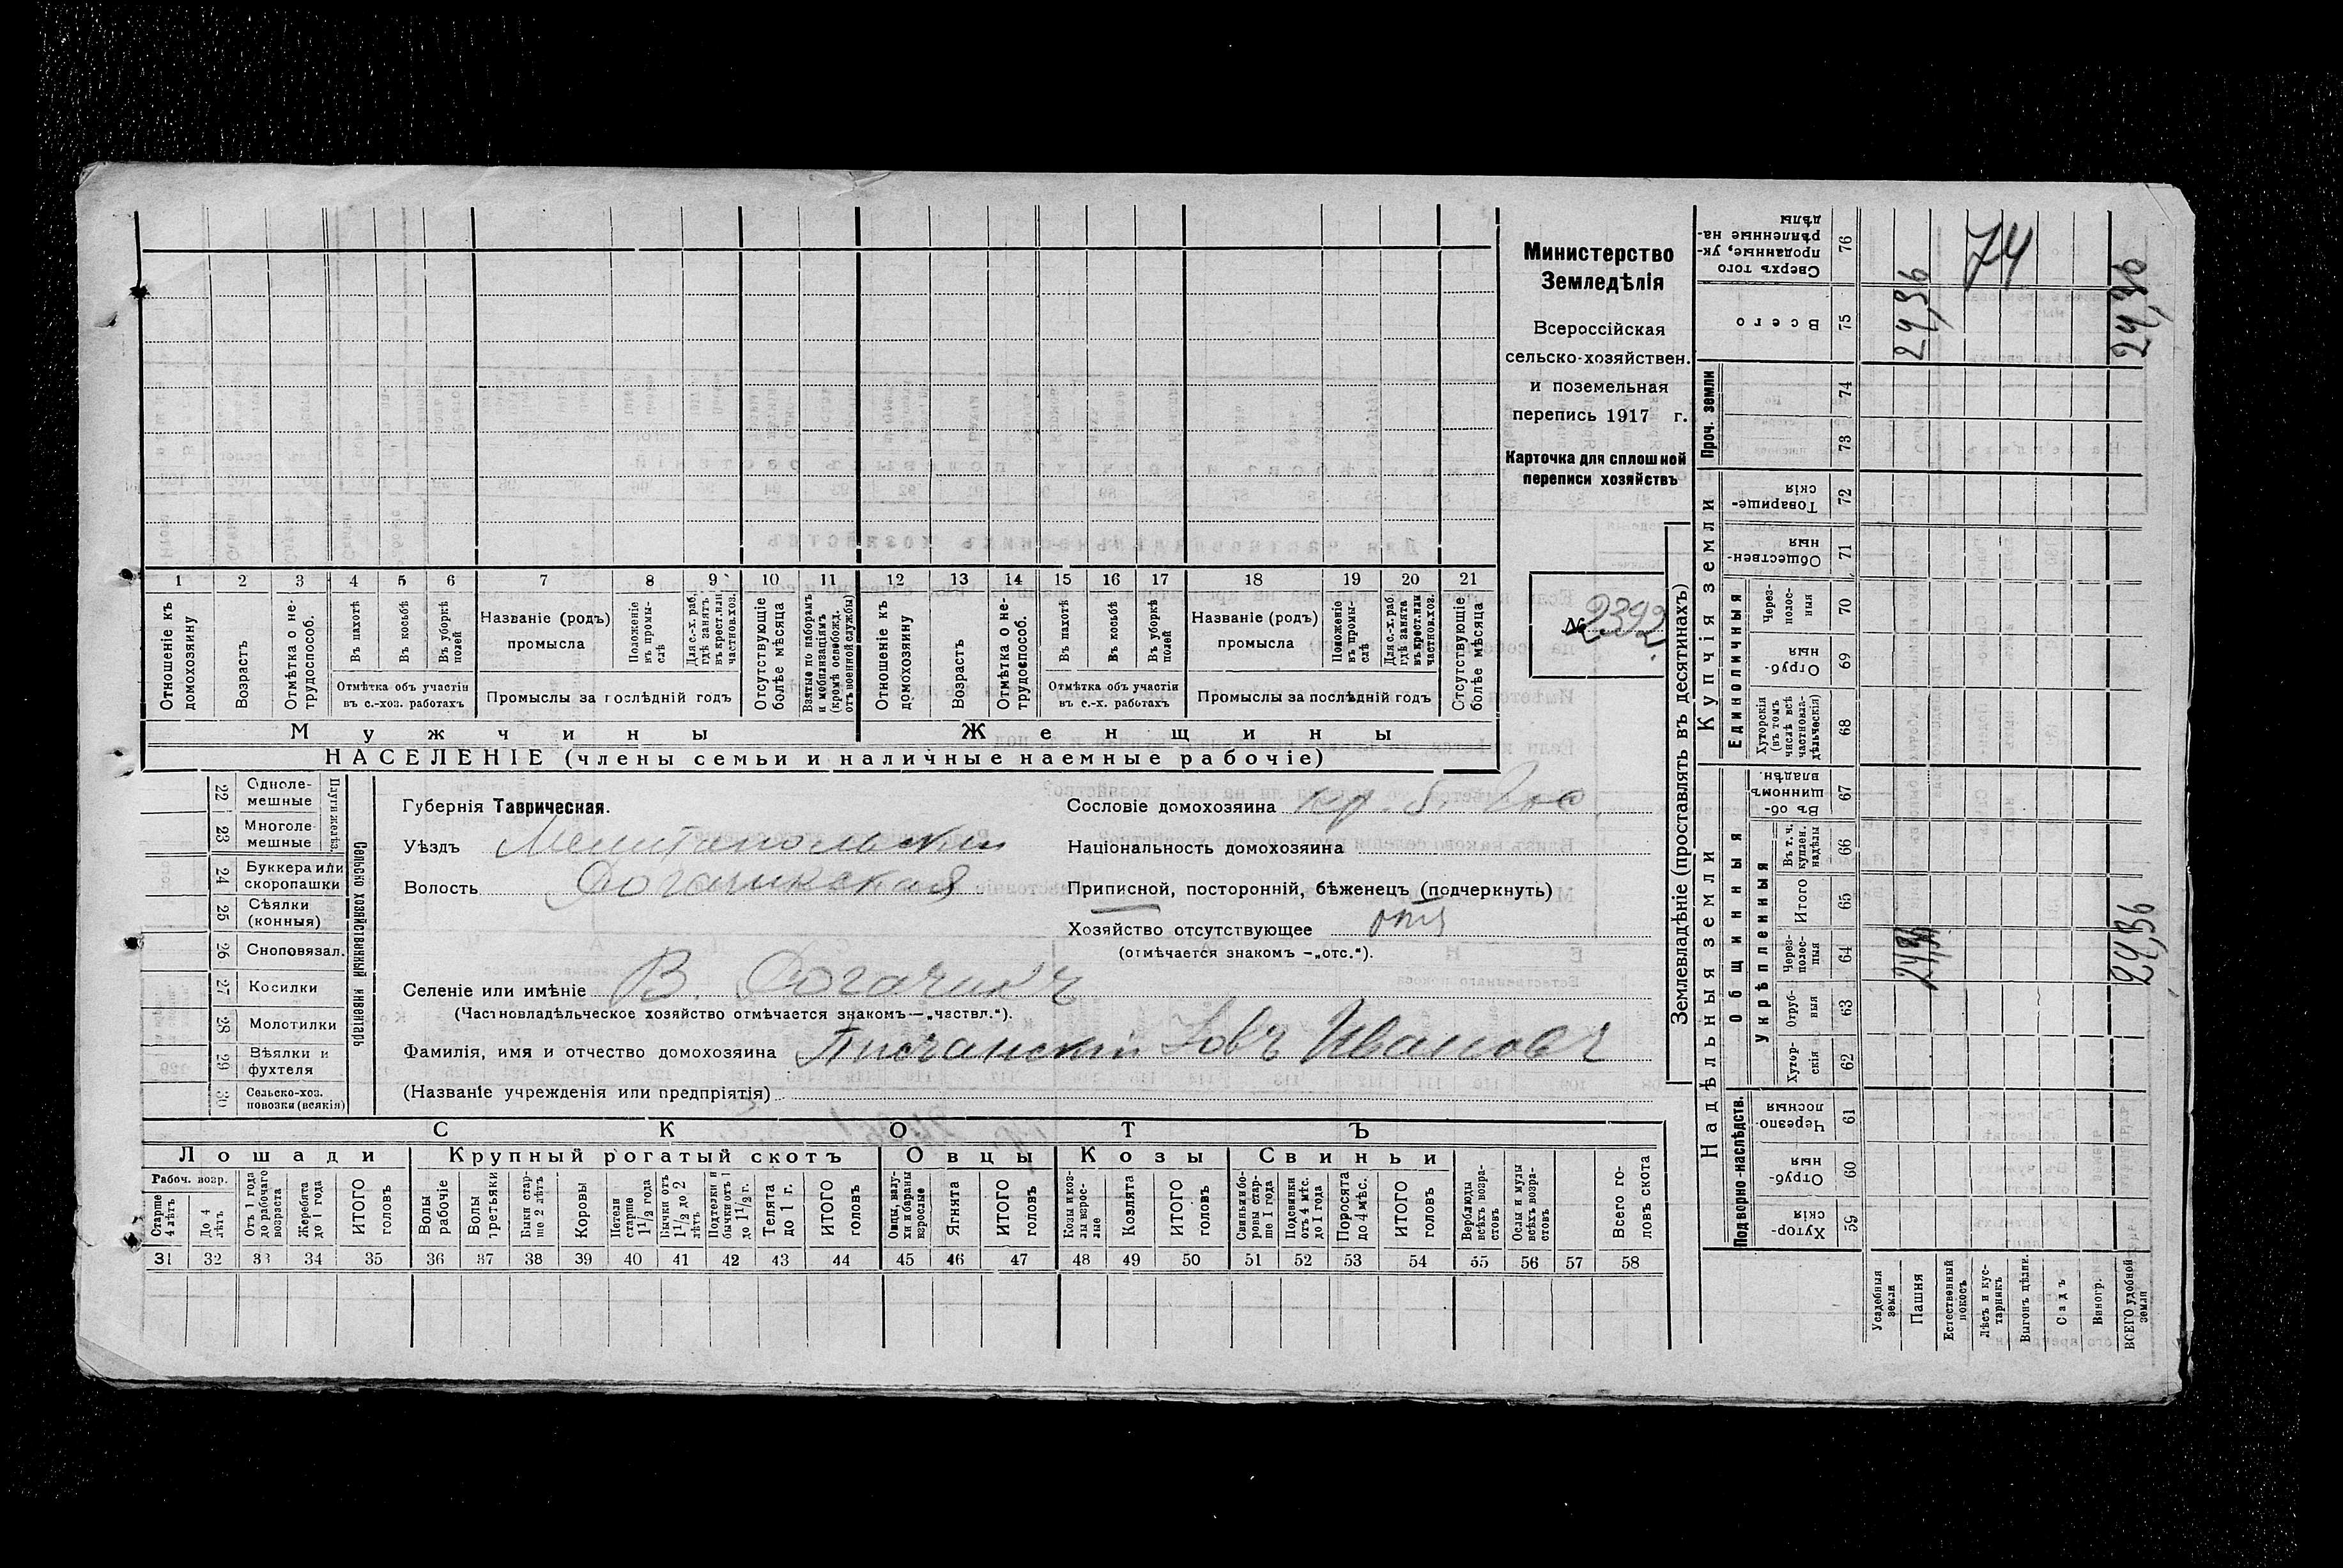 Министерство
Земледѣлія
Всероссійская
сельско-хозяйствен.
и поземельная
перепись 1917 г.
Карточка для сплошной
переписи хозяйствъ
№ 2392
1 2 3 4 5 6 7 8 9 10 11 12 13 14 15 16 17 18 19 20 21
Отношеніе къ домохозяину
Возрастъ
Отмѣтка о не-трудоспособ.
Въ пахотѣ
Въ косьбѣ
Въ уборкѣ полей
Отмѣтка объ участіи въ с.-хоз. работахъ
Названіе (родъ) промысла
Положеніе въ промы-слѣ
Для с.-х. раб., гдѣ занятъ въ крест. или частнов. хоз.
Промыслы за послѣдній годъ
Отсутствующіе болѣе мѣсяца
Взятые по наборамъ и мобилизаціямъ (кромѣ освобожд. отъ военной службы)
Отношеніе къ домохозяину
Возрастъ
Отмѣтка о не-трудоспособ.
Въ пахотѣ
Въ косьбѣ
Въ уборкѣ полей
Отмѣтка объ участіи въ с.-х. работахъ
Названіе (родъ) промысла
Положеніе въ промы-слѣ
Для с.-х. раб. гдѣ занята въ крест. или частнов. хоз.
Промыслы за послѣдній годъ
Отсутствующіе болѣе мѣсяца
Мужчины Женщины
НАСЕЛЕНІЕ (члены семьи и наличные наемные рабочіе)
22 Одноле-мешные
23 Многоле-мешные
Плуги желѣз.
24 Буккера или скоропашки
25 Сѣялки (конныя)
26 Сноповязал.
27 Косилки
28 Молотилки
29 Вѣялки и фухтеля
30 Сельско-хоз. повозки (всякія)
Сельско хозяйственный инвентарь
Губернія Таврическая.
Уѣздъ Мелитопольскій
Волость Рогачикская
Селеніе или имѣніе В. Рогачикъ
(Частновладѣльческое хозяйство отмѣчается знакомъ—„частвл.“).
Фамилія, имя и отчество домохозяина Писчанскій Іовъ Ивановъ
(Названіе учрежденія или предпріятія)
Сословіе домохозяина кр.
Національность домохозяина
Приписной, посторонній, бѣженецъ (подчеркнуть)
Хозяйство отсутствующее отц
(отмѣчается знакомъ –„отс.“).
СКОТЪ
Лошади Крупный рогатый скотъ Овцы Козы Свиньи
Рабоч. возр.
Старше 4 лѣтъ
До 4 лѣтъ
Отъ 1 года до рабочаго возраста
Жеребята до 1 года
ИТОГО головъ
Волы рабочіе
Волы третьяки
Быки стар-ше 2 лѣтъ
Коровы
Нетели старше 1½ года
Бычки отъ 1½ до 2 лѣтъ
Подтелки и бычки отъ 1 до 1½ г.
Телята до 1 г.
ИТОГО головъ
Овцы, валу-хи и бараны взрослые
Ягнята
ИТОГО головъ
Козы и коз-лы взрос-лые
Козлята
ИТОГО головъ
Свиньи и бо-ровы стар-ше 1 года
Подсвинки отъ 4 мѣс. до 1 года
Поросята до 4 мѣс.
ИТОГО головъ
Верблюды всѣхъ возра-стовъ
Ослы и мулы всѣхъ возра-стовъ
Всего го-ловъ скота
31 32 33 34 35 36 37 38 39 40 41 42 43 44 45 46 47 48 49 50 51 52 53 54 55 56 57 58
Землевладѣніе (проставлять въ десятинахъ)
Надѣльныя земли Купчія земли Проч. земли
Подворно-наслѣдств.
Общинныя
Укрѣпленныя
Единоличныя
Хутор-скія 59
Отруб-ныя 60
Черезпо-лосныя 61
Хутор-скія 62
Отруб-ныя 63
Через-полос-ныя 64
Итого 65
Въ т. ч. куплен. надѣлы 66
Въ об-шинномъ владѣн. 67
Хуторскія (въ томъ числѣ всѣ частновла-дѣльческія) 68
Отруб-ныя 69
Через-полос-ныя 70
Обществен-ныя 71
Товарище-скія 72
73
74
Всего 75
Сверхъ того проданные, ук-рѣпленные на-дѣлы 76
Усадебныя земли
Пашня
24,36
24,36
Естественный покосъ
Лѣсъ и кус-тарникъ
Выгонъ цѣлин.
Садъ
Виногр.
ВСЕГО удобной земли
24,36
24,36
74